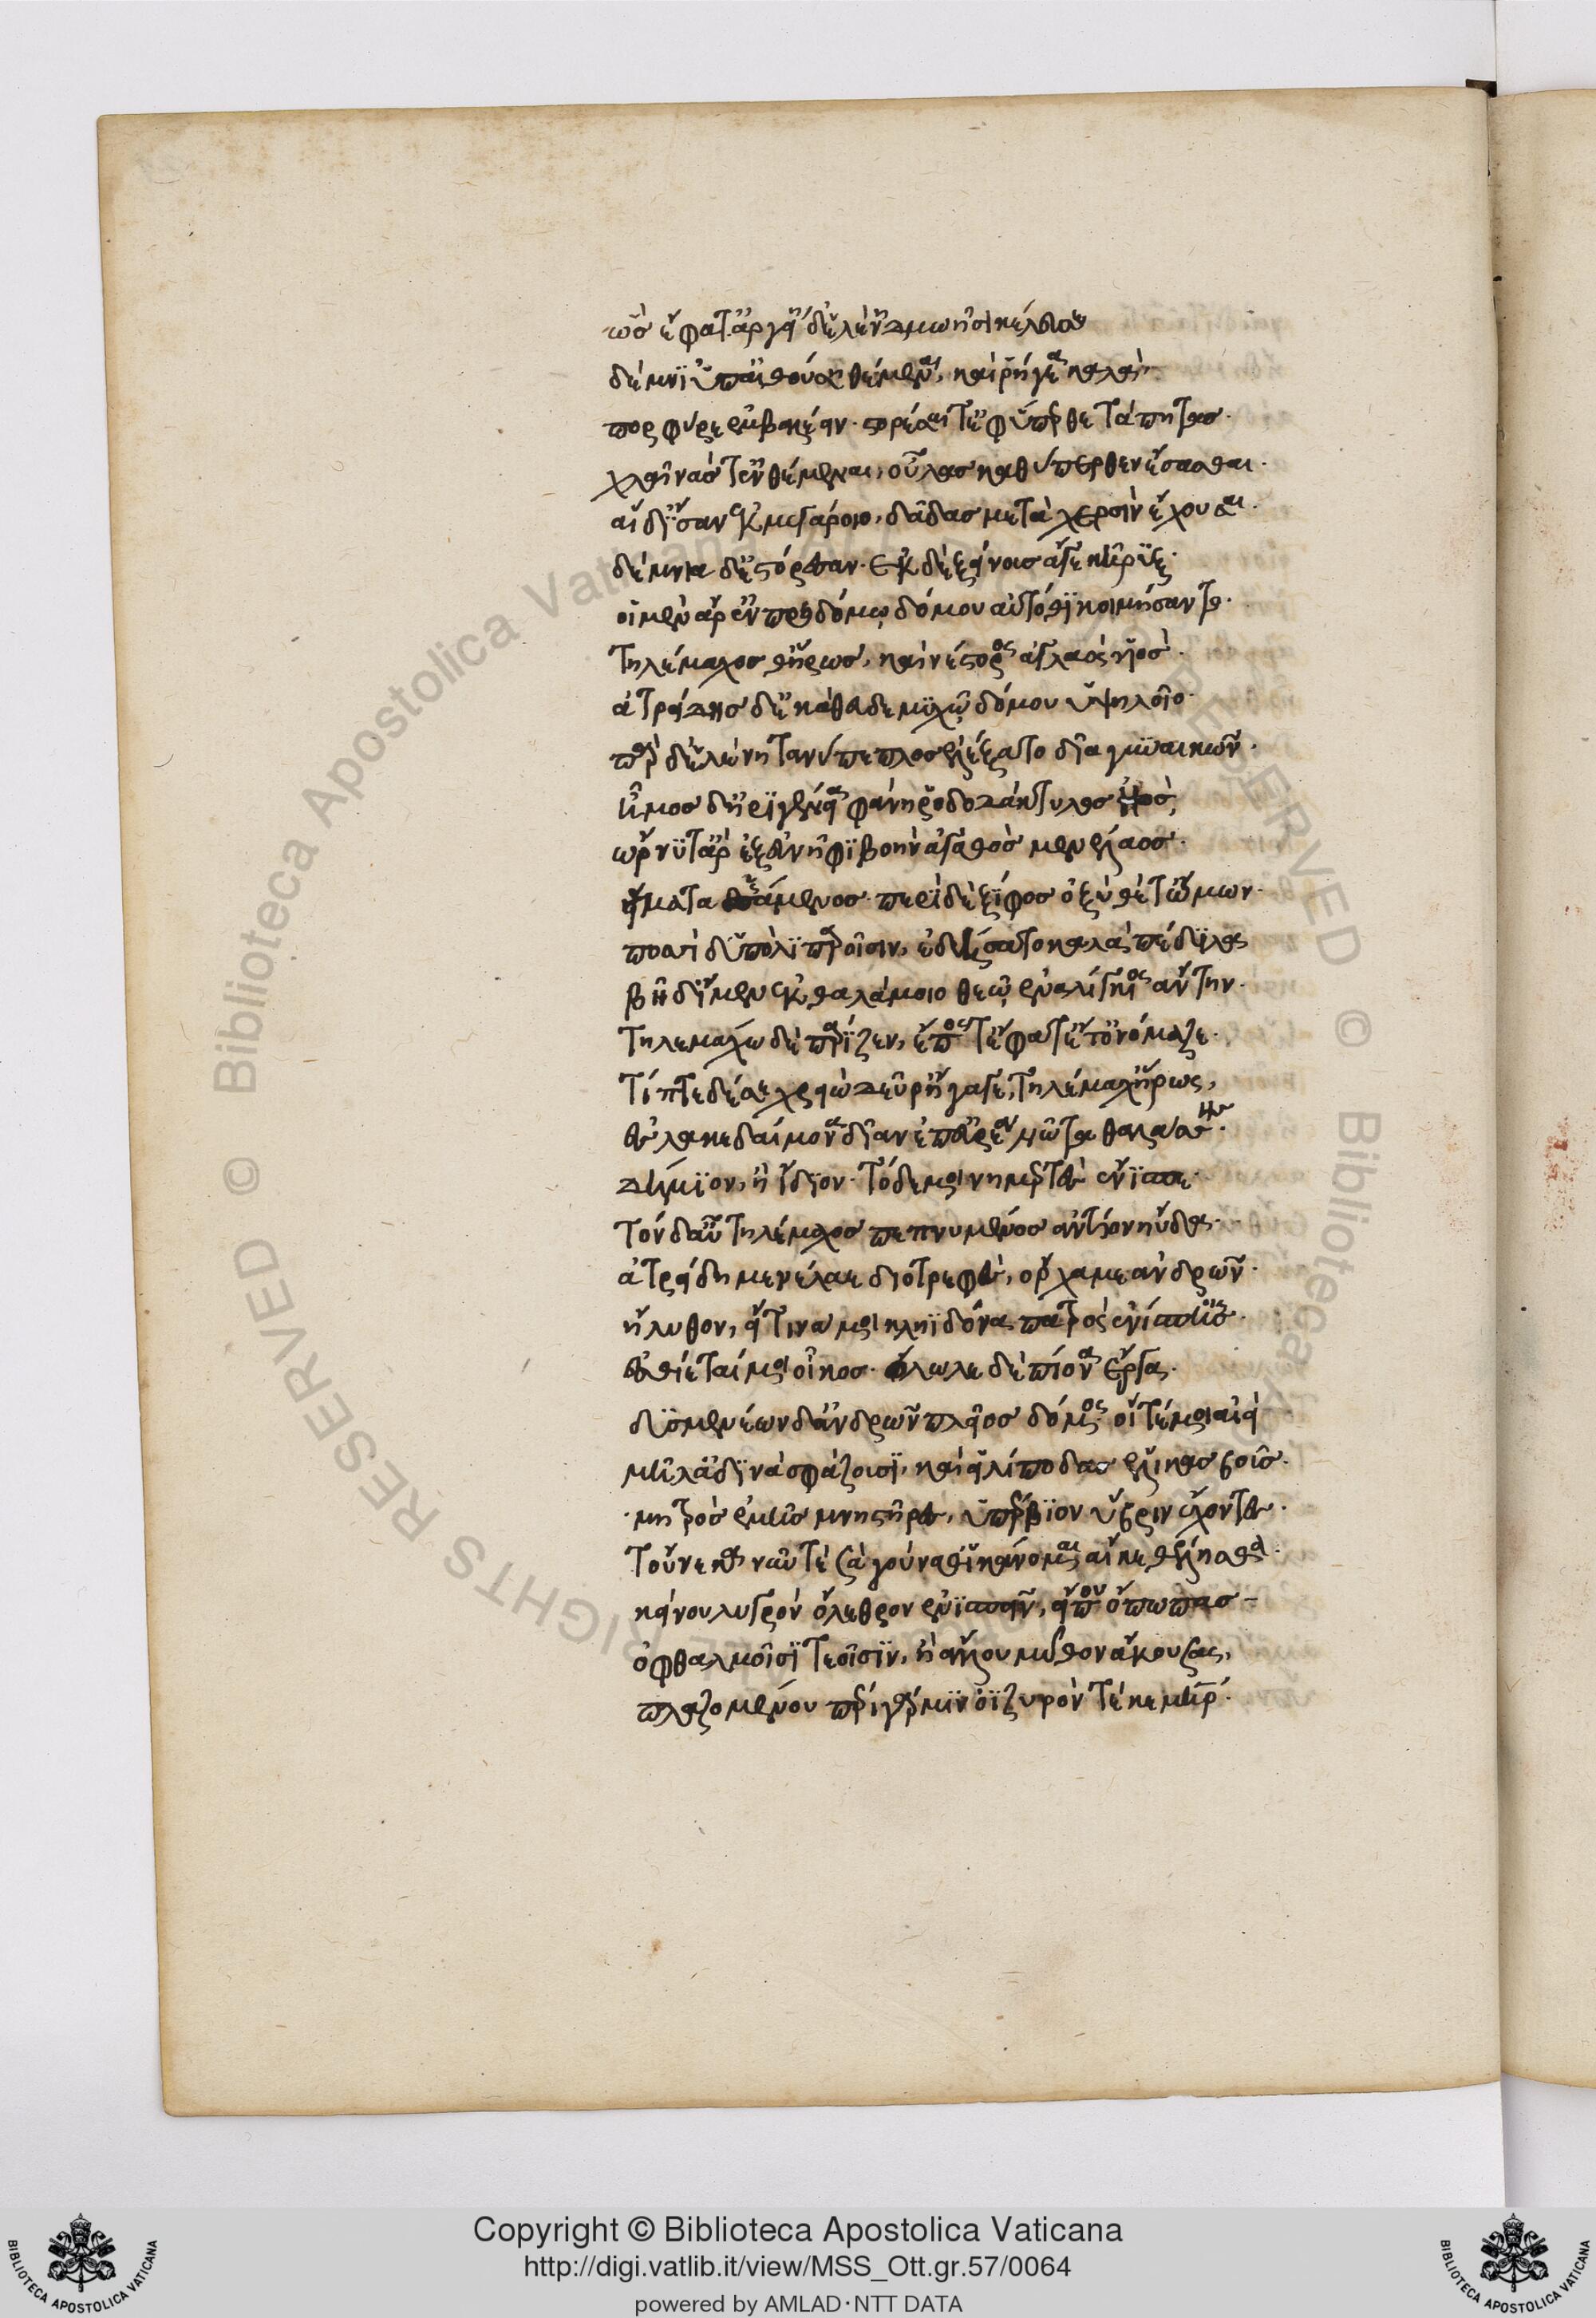 ὣς ἔφατ' ἀργείη δ' ἑλένη δμωῇσι κέλευσε
δέμνι' ὑπ' αἰθούσῃ θέμεναι, καὶ ῥήγεα καλὰ
πορφύρε' ἐμβαλέειν. στορέσαι τ' ἐφύπερθε τάπητας.
χλαίνας τ' ἐνθέμεναι, οὔλας καθύπερθεν ἕσασθαι.
αἱ δ' ἴσαν ἐκ μεγάροιο, δᾷδας μετὰ χερσὶν ἔχουσαι.
δέμνια δ' ἐστόρεσαν. ἐκ δὲ ξείνους ἄγε κῆρυξ.
οἱ μὲν ἄρ' ἐν προδόμῳ δόμου αὐτόθι κοιμήσαντο.
τηλέμαχος θ' ἥρως, καὶ νέστορος ἀγλαὸς υἱός.
ἀτρείδης δὲ καθεῦδε μυχῷ δόμου ὑψηλοῖο.
πὰρ δ' ἑλένη τανύπεπλος ἐλέξατο δῖα γυναικῶν.
ἦμος δ' ἠριγένεια φάνη ῥοδοδάκτυλος ἠώς,
ὤρνυτ' ἄρ' ἐξ εὐνῆφι βοὴν ἀγαθὸς μενέλαος.
εἵματα ἑσσάμενος. περὶ δὲ ξίφος ὀξὺ θέτ' ὤμων.
ποσσὶ δ' ὑπὸ λιπαροῖσιν, ἐδήσατο καλὰ πέδιλα
βῆ δ' ἴμεν ἐκ θαλάμοιο θεῷ ἐναλίγκιος ἄντην.
τηλεμάχῳ δὲ παρῖζεν, ἔπος τ' ἔφατ' ἔκ τ' ὀνόμαζε.
τίπτε δέ σε χρειὼ δεῦρ' ἤγαγε, τηλέμαχ' ἥρως,
ἐς λακεδαίμονα δῖαν ἐπ' εὐρέα νῶτα θαλάσσης.
δήμιον, ἢ ἴδιον. τόδε μοι νημερτὲς ἔνισπε.
τὸν δ' αὖ τηλέμαχος πεπνυμένος ἀντίον ηὔδα.
ἀτρείδη μενέλαε διοτρεφὲς, ὄρχαμε ἀνδρῶν.
ἤλυθον, εἴ τινά μοι κληηδόνα πατρὸς ἐνίσποις.
ἐσθίεταί μοι οἶκος. ὄλωλε δὲ πίονα ἔργα.
δυσμενέων δ' ἀνδρῶν πλεῖος δόμος. οἵ τέ μοι αἰεὶ
μῆλ' ἁδινὰ σφάζουσι, καὶ εἰλίποδας ἕλικας βοῦς.
μητρὸς ἐμῆς μνηστῆρες, ὑπέρβιον ὕβριν ἔχοντες.
τούνεκα νῦν τὰ σὰ γούναθ' ἱκάνομαι αἴ κ' ἐθέλησθα.
κείνου λυγρὸν ὄλεθρον ἐνισπεῖν, εἴ που ὄπωπας
ὀφθαλμοῖσι τεοῖσιν, ἢ ἄλλου μῦθον ἄκουσας,
πλαζομένου πέρι γάρ μιν ὀϊζυρὸν τέκε μήτηρ.